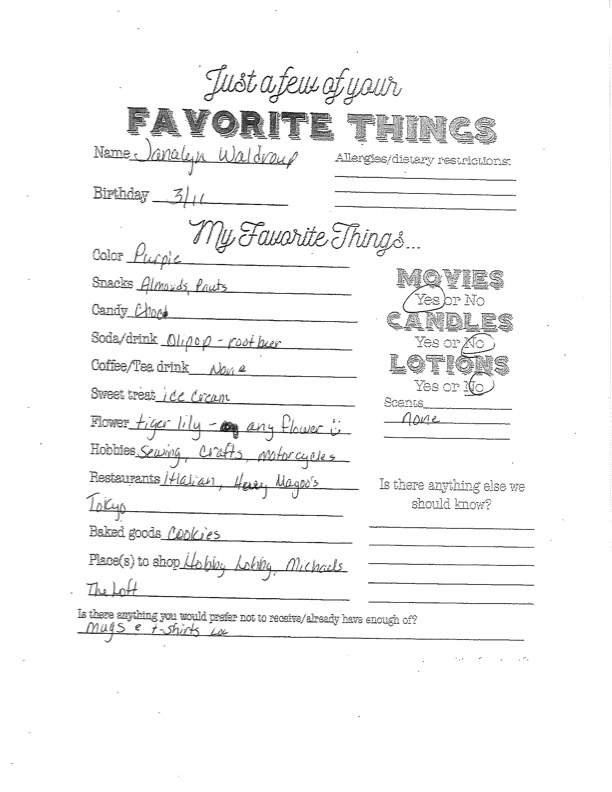 Just a few of your
FAVORITE THINGS
Name Janalyn Waldroup
Allergies/dietary restrictions:
Birthday 3/11
My Favorite Things...
Color Purple
Snacks Almonds, Pnuts
Candy Choc
Soda/drink Olipop - rootbeer
Coffee/Tea drink None
Sweet treat ice cream
Flower tiger lily - any flower ☺
Hobbies Sewing, Crafts, motorcycles
Restaurants Italian, Henry Magoo's
Tokyo
Baked goods Cookies
Place(s) to shop Hobby Lobby, Michaels
The Loft
MOVIES
Yes or No
CANDLES
Yes or No
LOTIONS
Yes or No
Scents
none
Is there anything else we
should know?
Is there anything you would prefer not to receive/already have enough of?
mugs & t-shirts